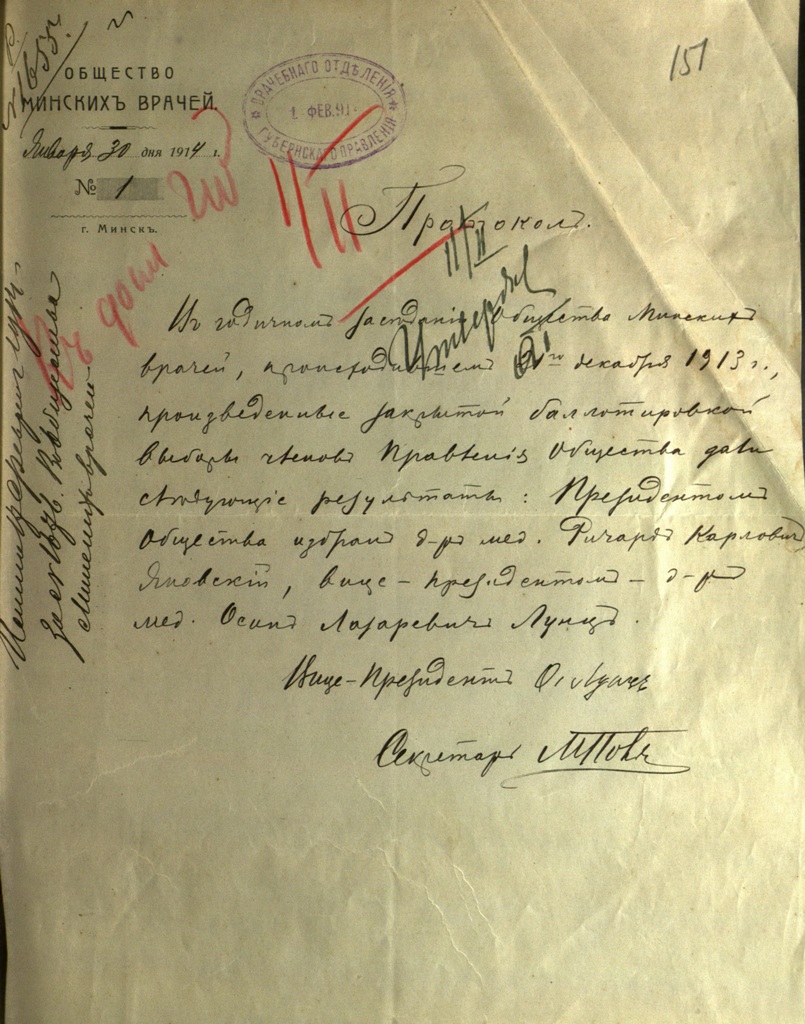 151
ОБЩЕСТВО
МИНСКИХЪ ВРАЧЕЙ.
Января 30 дня 1914 г.
№ 1
г. Минскъ.
ВРАЧЕБНАГО ОТДѢЛЕНІЯ
1 ФЕВ.91
ГУБЕРНСКАГО ПРАВЛЕНІЯ
11/II
Протоколъ.
11/II
Въ годичномъ засѣданіи Общества Минскихъ
врачей, происходившемъ декабря 1913 г.,
произведенные закрытой баллотировкой
выборы членовъ Правленія Общества дали
слѣдующіе результаты: Президентомъ
Общества избранъ д-ръ мед. Ричардъ Карловичъ
Яновскій, вице-президентомъ - д-ръ
мед. Осипъ Лазаревичъ Лунцъ.
Вице-Президентъ О. Лунцъ
Секретарь